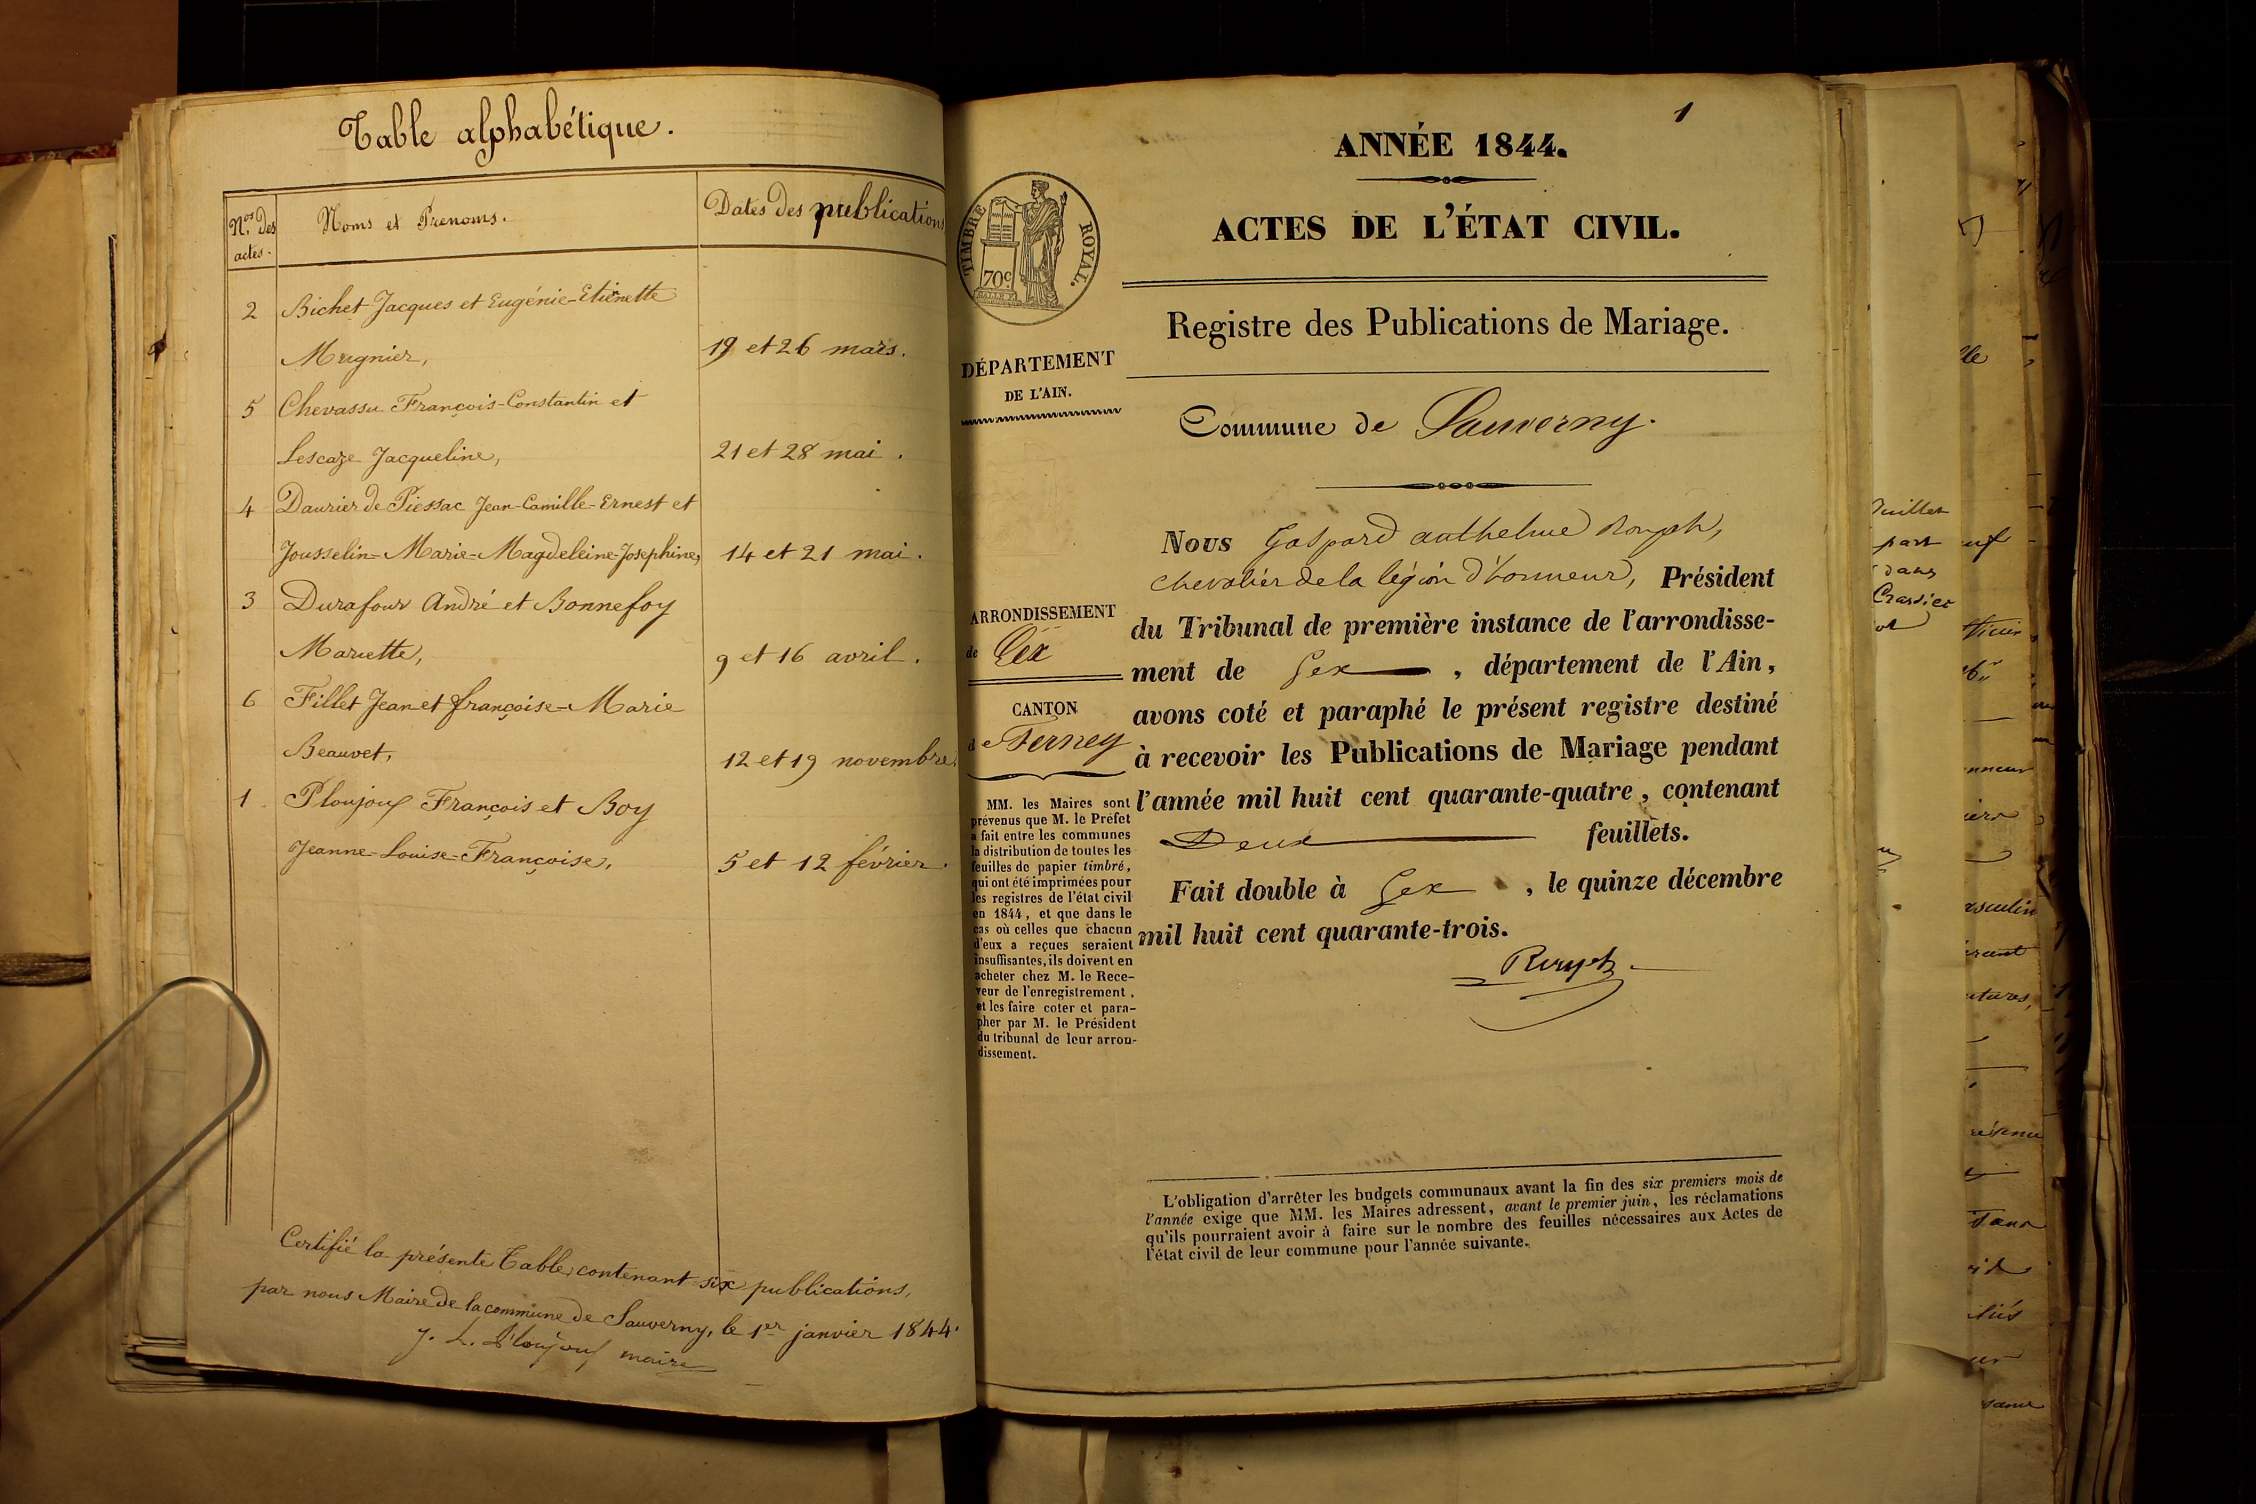 Table alphabétique.
Nos des actes.
Noms et Prénoms.
Dates des publications
2 Bichet Jacques et Eugénie-Etiennette
Mugnier, 19 et 26 mars.
5 Chevassu François-Constantin et
Lescaze Jacqueline, 21 et 28 mai.
4 Daurier de Piessac Jean-Camille-Ernest et
Jousselin-Marie-Magdeleine-Josephine, 14 et 21 mai.
3 Durafour André et Bonnefoy
Mariette, 9 et 16 avril.
6 Fillet Jean et françoise-Marie
Beauvet, 12 et 19 novembre.
1 Ploujoux François et Boy
Jeanne-Louise-Françoise, 5 et 12 février.
Certifié la présente Table, contenant six publications,
par nous Maire de la commune de Sauverny, le 1er janvier 1844.
J. L. Ploujoux maire
1
ANNÉE 1844.
ACTES DE L'ÉTAT CIVIL.
TIMBRE ROYAL.
70c
Registre des Publications de Mariage.
DÉPARTEMENT
DE L'AIN.
Commune de Sauverny.
ARRONDISSEMENT
de Gex
CANTON
de Ferney
MM. les Maires sont
prévenus que M. le Préfet
a fait entre les communes
la distribution de toutes les
feuilles de papier timbré,
qui ont été imprimées pour
les registres de l'état civil
en 1844, et que dans le
cas où celles que chacun
d'eux a reçues seraient
insuffisantes, ils doivent en
acheter chez M. le Rece-
veur de l'enregistrement,
et les faire coter et para-
pher par M. le Président
du tribunal de leur arron-
dissement.
Nous Gaspard anthelme
chevalier de la légion d'honneur, Président
du Tribunal de première instance de l'arrondisse-
ment de Gex, département de l'Ain,
avons coté et paraphé le présent registre destiné
à recevoir les Publications de Mariage pendant
l'année mil huit cent quarante-quatre, contenant
Deux feuillets.
Fait double à Gex, le quinze décembre
mil huit cent quarante-trois.
L'obligation d'arrêter les budgets communaux avant la fin des six premiers mois de
l'année exige que MM. les Maires adressent, avant le premier juin, les réclamations
qu'ils pourraient avoir à faire sur le nombre des feuilles nécessaires aux Actes de
l'état civil de leur commune pour l'année suivante.